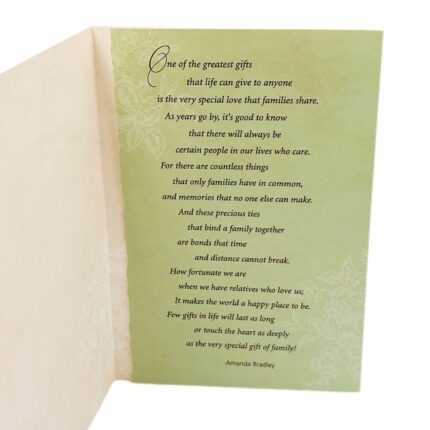 One of the greatest gifts
that life can give to anyone
is the very special love that families share.
As years go by, it's good to know
that there will always be
certain people in our lives who care.
For there are countless things
that only families have in common,
and memories that no one else can make.
And these precious ties
that bind a family together
are bonds that time
and distance cannot break.
How fortunate we are
when we have relatives who love us;
It makes the world a happy place to be.
Few gifts in life will last as long
or touch the heart as deeply
as the very special gift of family!
Amanda Bradley